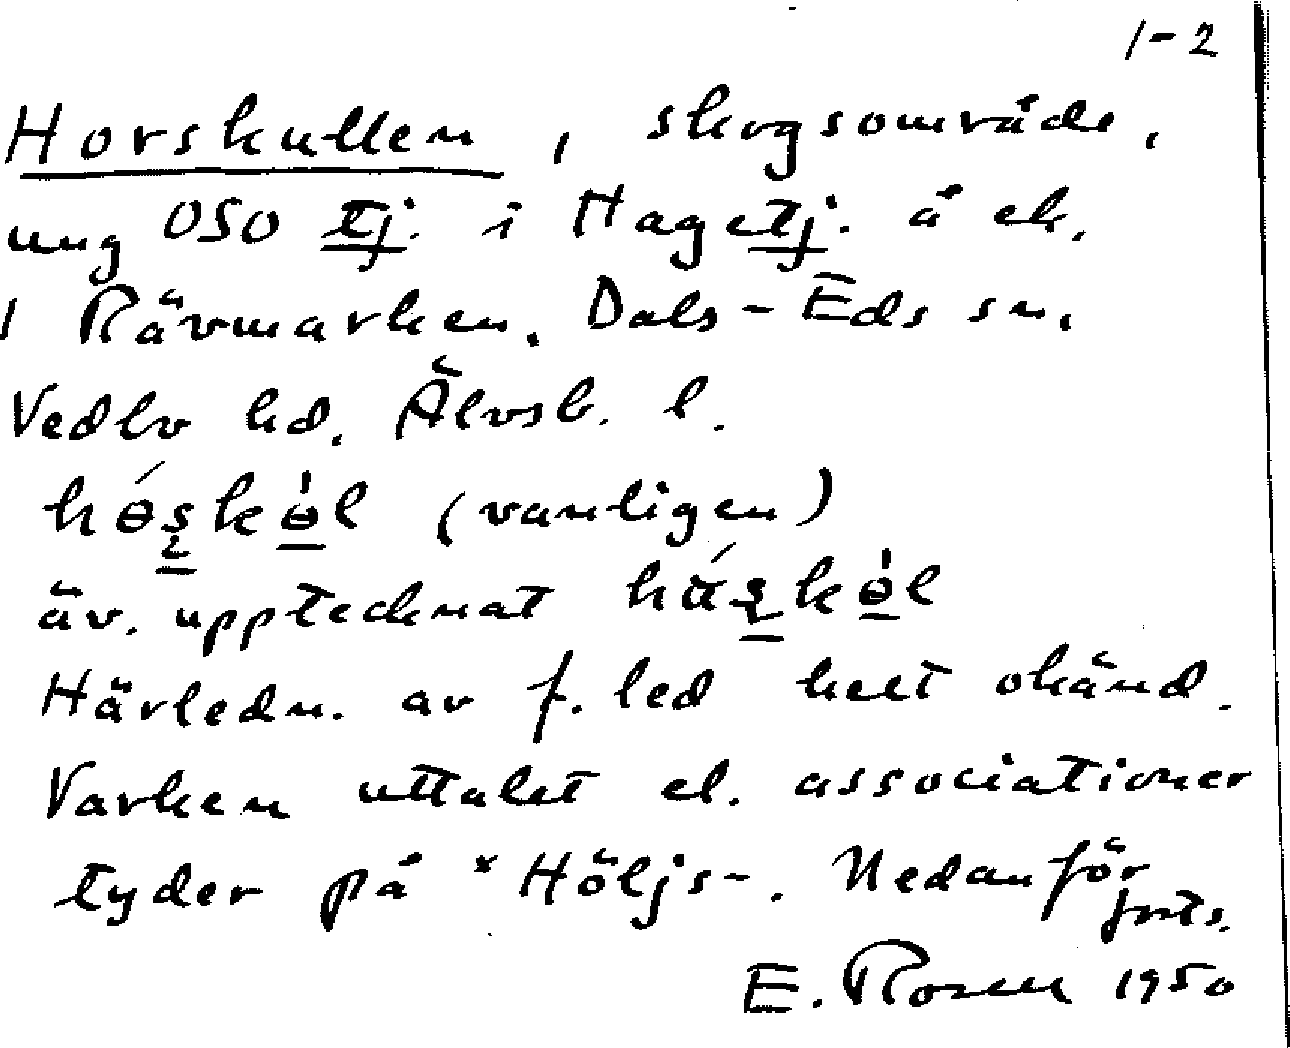 1-2
Horskullen, skogsområde,
ung OSO tj. i Hagetj. å ek.
1 Rävmarken. Dals-Eds sn.
Vedbo hd. Älvsb. l.
(vanligen)
äv. upptecknat
Härledn. av f. led helt okänd.
Varken uttalet el. associationer
tyder på *Höljs-. Nedanför
forts.
E. Rosen 1950